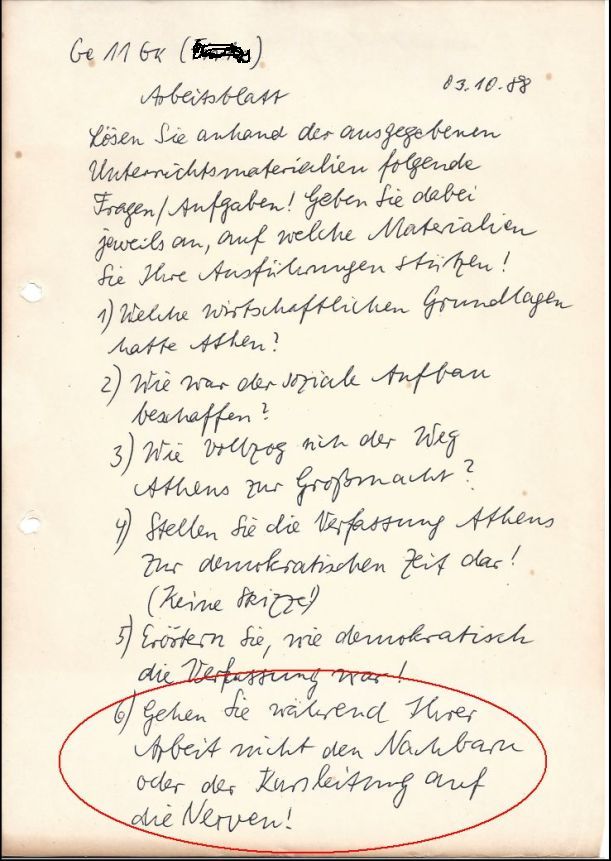 Ge 11 GK (
03.10.88
Arbeitsblatt
Lösen Sie anhand der ausgegebenen
Unterrichtsmaterialien folgende
Fragen/Aufgaben! Geben Sie dabei
jeweils an, auf welche Materialien
Sie Ihre Ausführungen stützen!
1) Welche wirtschaftlichen Grundlagen
hatte Athen?
2) Wie war der soziale Aufbau
beschaffen?
3) Wie vollzog sich der Weg
Athens zur Großmacht?
4) Stellen Sie die Verfassung Athens
zur demokratischen Zeit dar!
(Keine Skizze!)
5) Erörtern Sie, wie demokratisch
die Verfassung war!
6) Gehen Sie während Ihrer
Arbeit nicht den Nachbarn
oder der Kursleitung auf
die Nerven!